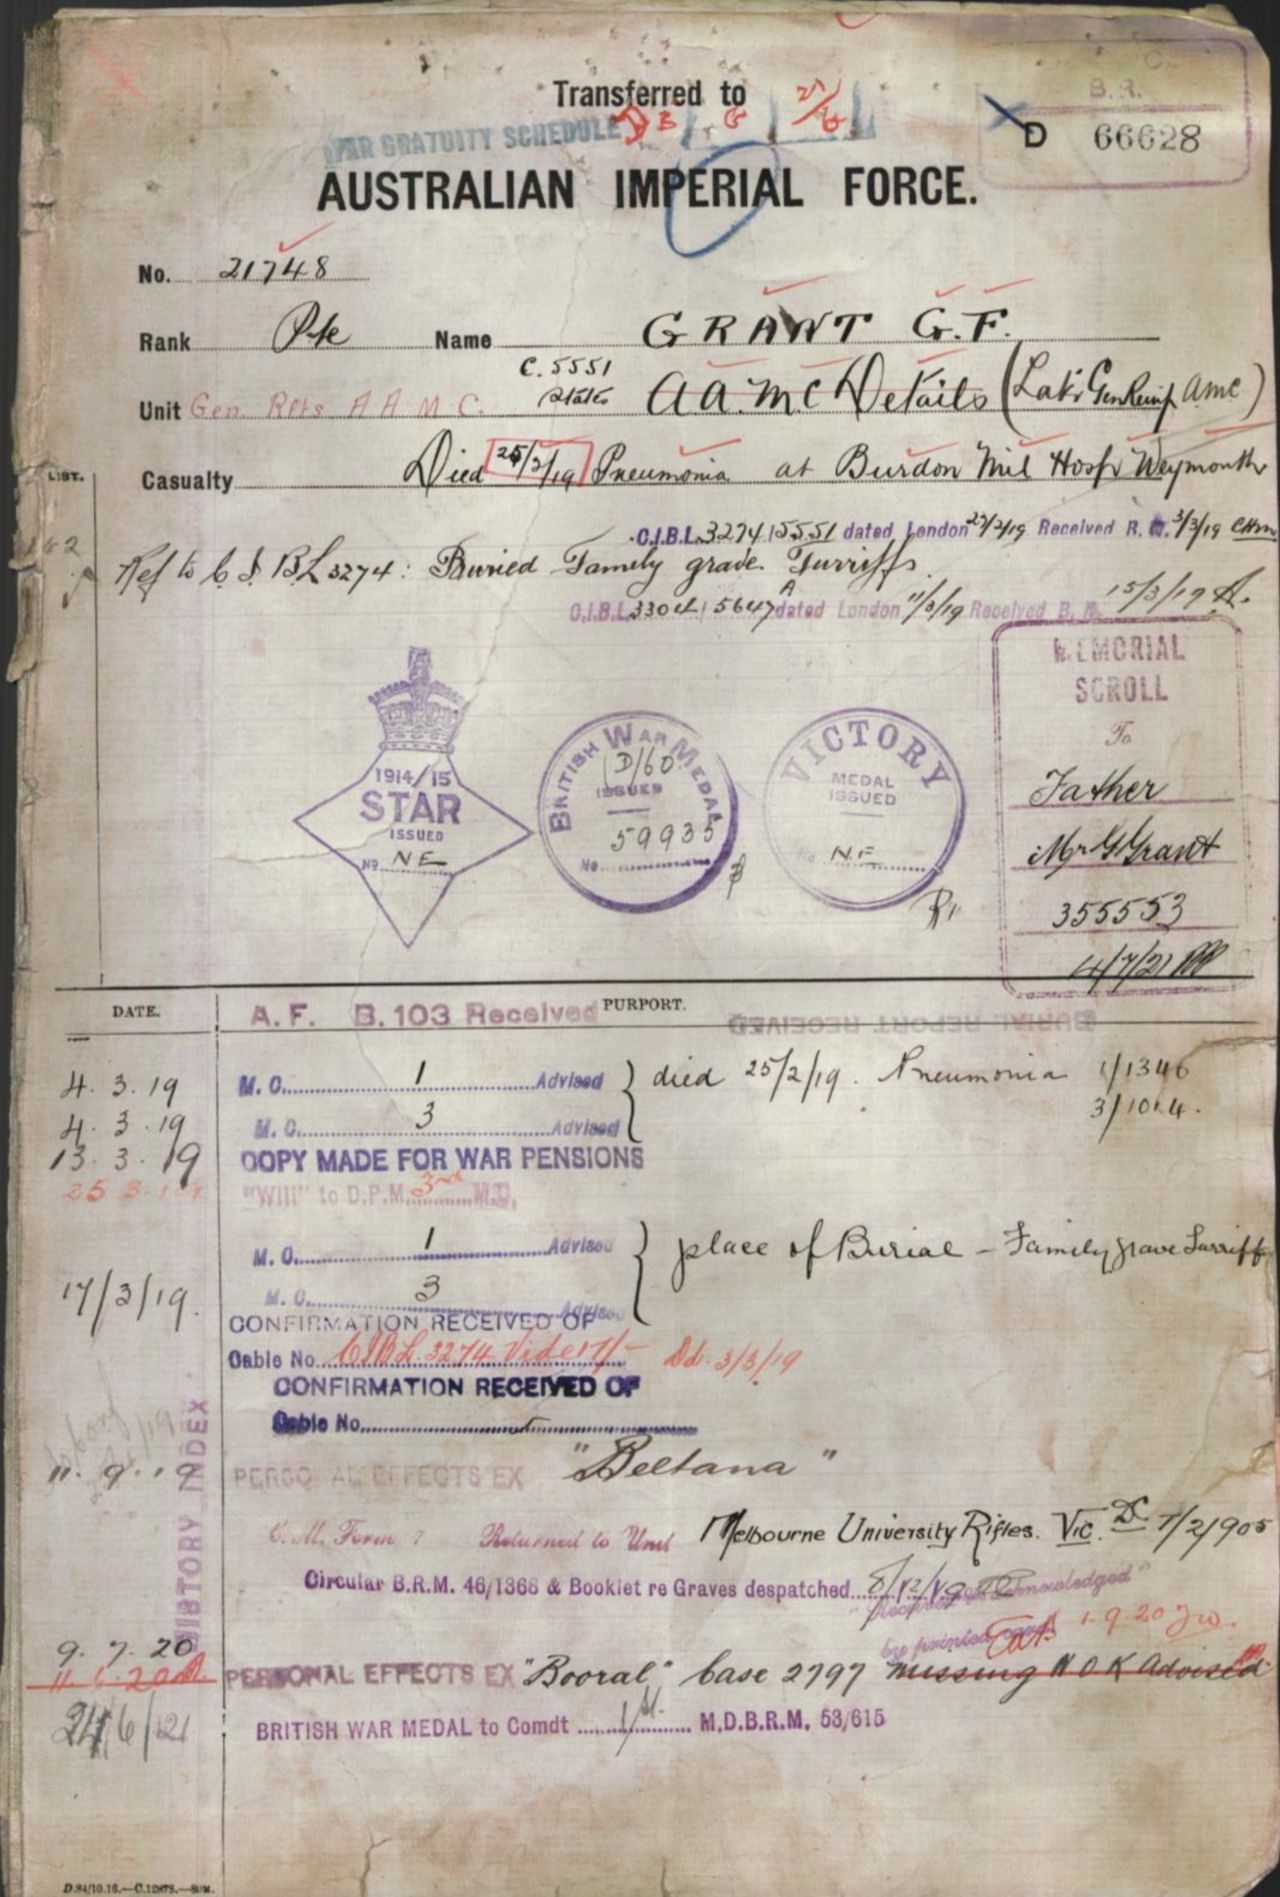 Transferred to
WAR GRATUITY SCHEDULE
B.R.
D 66628
AUSTRALIAN IMPERIAL FORCE.
No. 21748
Rank Pte Name GRANT G.F.
C. 5551 states
Unit Gen Rfts A A M C. AA.M.C Details (Late Gen Reinf AMC)
LIST.
Casualty Died 25/2/19 Pneumonia at Burdon Mil Hosp Weymouth
C.I.B.L. 3274/5551 dated London 27/2/19 Received R. 3/3/19
Ref to C I BL 3274: Buried Family grave. Turriff
C.I.B.L. 3304/5647A dated London 11/3/19 Received B. R. 15/3/19
MEMORIAL
SCROLL
To
Father
Mr G Grant
355553
4/7/21
1914/15
STAR
ISSUED
No NE
BRITISH WAR MEDAL
D/60
ISSUED
59935
No
VICTORY
MEDAL
ISSUED
No N.E.
DATE. PURPORT.
A. F. B. 103 Received
BURIAL REPORT RECEIVED
4. 3. 19 M. C. 1 Advised } died 25/2/19. Pneumonia 1/1346
4. 3. 19 M. C. 3 Advised 3/1014.
13. 3. 19 COPY MADE FOR WAR PENSIONS
25 3 "Will" to D.P.M. 3rd M.D.
M. C. 1 Advised } place of Burial - Family grave Turriff
17/3/19. M. C. 3 Advised
CONFIRMATION RECEIVED OF
Cable No. CIBL. 3274 Dd. 3/3/19
CONFIRMATION RECEIVED OF
Cable No.
11. 9. 19 PERSONAL EFFECTS EX "Beltana"
HISTORY INDEX
C. M. Form 7 Returned to Unit Melbourne University Rifles. Vic. DC 7/2/905
Circular B.R.M. 46/1368 & Booklet re Graves despatched 8/12/19
acknowledged"
by printed card 1-9-20
9. 7. 20
PERSONAL EFFECTS EX "Booral" Case 2797 missing N O K Advised
24/6/21 BRITISH WAR MEDAL to Comdt M.D.B.R.M. 53/615
D.84/10.16.—C.12878.—50M.